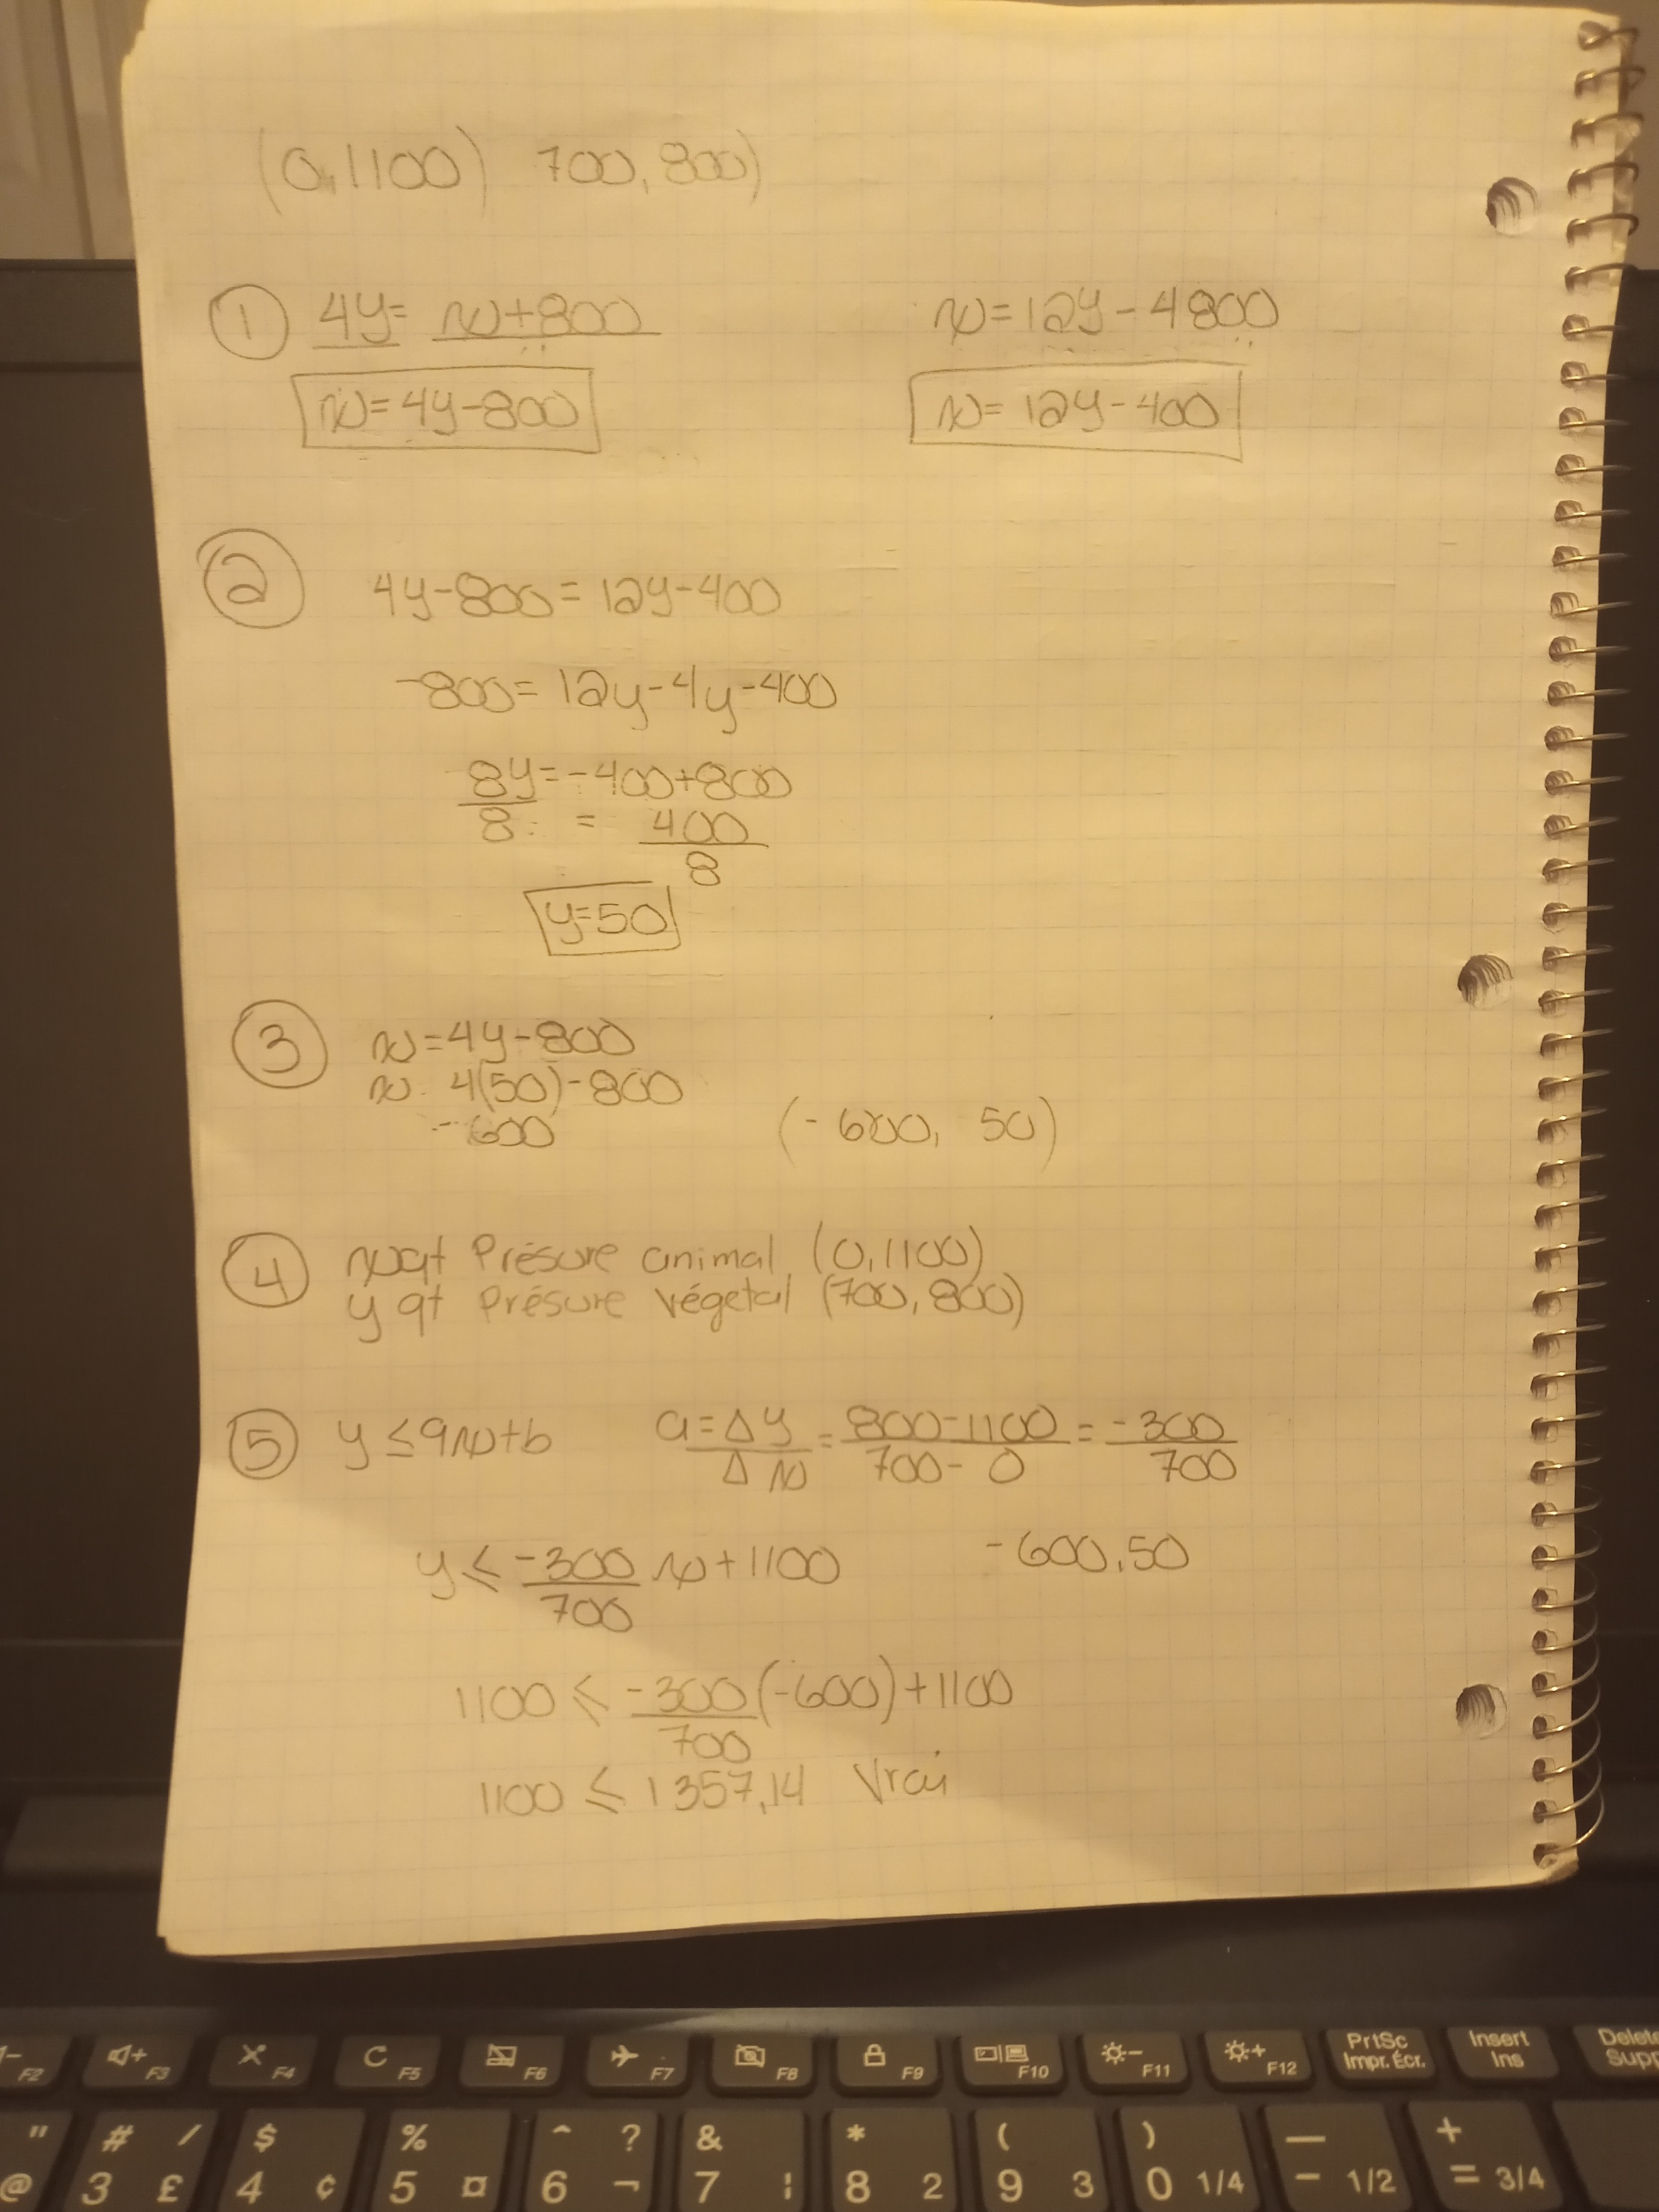 (0,1100) 700, 800)
① 4y = x+800
x = 12y - 4800
x = 4y - 800
x = 12y - 400
② 4y - 800 = 12y - 400
-800 = 12y - 4y - 400
8y = -400 + 800
8 = 400
8
y = 50
③ x = 4y - 800
x 4(50) - 800
-600
(-600, 50)
④ x qt Présure animal (0,1100)
y qt Présure végetal (700, 800)
⑤ y ≤ ax+b a = Δy = 800 - 1100 = -300
Δx 700 - 0 700
y ≤ -300 x + 1100 -600,50
700
1100 ≤ -300 (-600) + 1100
700
1100 ≤ 1357,14 Vrai
F2 F3 F4 C F5 F6 F7 F8 F9 F10 F11 F12 PrtSc Impr. Écr. Insert Ins Delete
" @ # / 3 £ $ 4 ¢ % 5 ¤ ^ ? 6 ¬ & 7 ¦ * 8 2 ( 9 3 ) 0 1/4 — - 1/2 + = 3/4